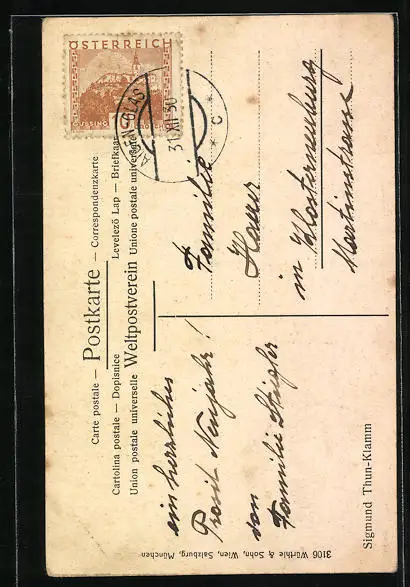 ÖSTERREICH
GÜSSING
31.XII 30
C
Postkarte — Correspondenzkarte
Carte postale —
Levelező Lap — Briefkaart
Cartolina postale — Dopisnice
Weltpostverein
Union postale universelle
Unione postale universale
Familie
Hauer
in Klosterneuburg
Martinstrasse
ein herzliches
Prosit Neujahr!
von
Familie
Sigmund Thun-Klamm
3106 Würthle & Sohn, Wien, Salzburg, München